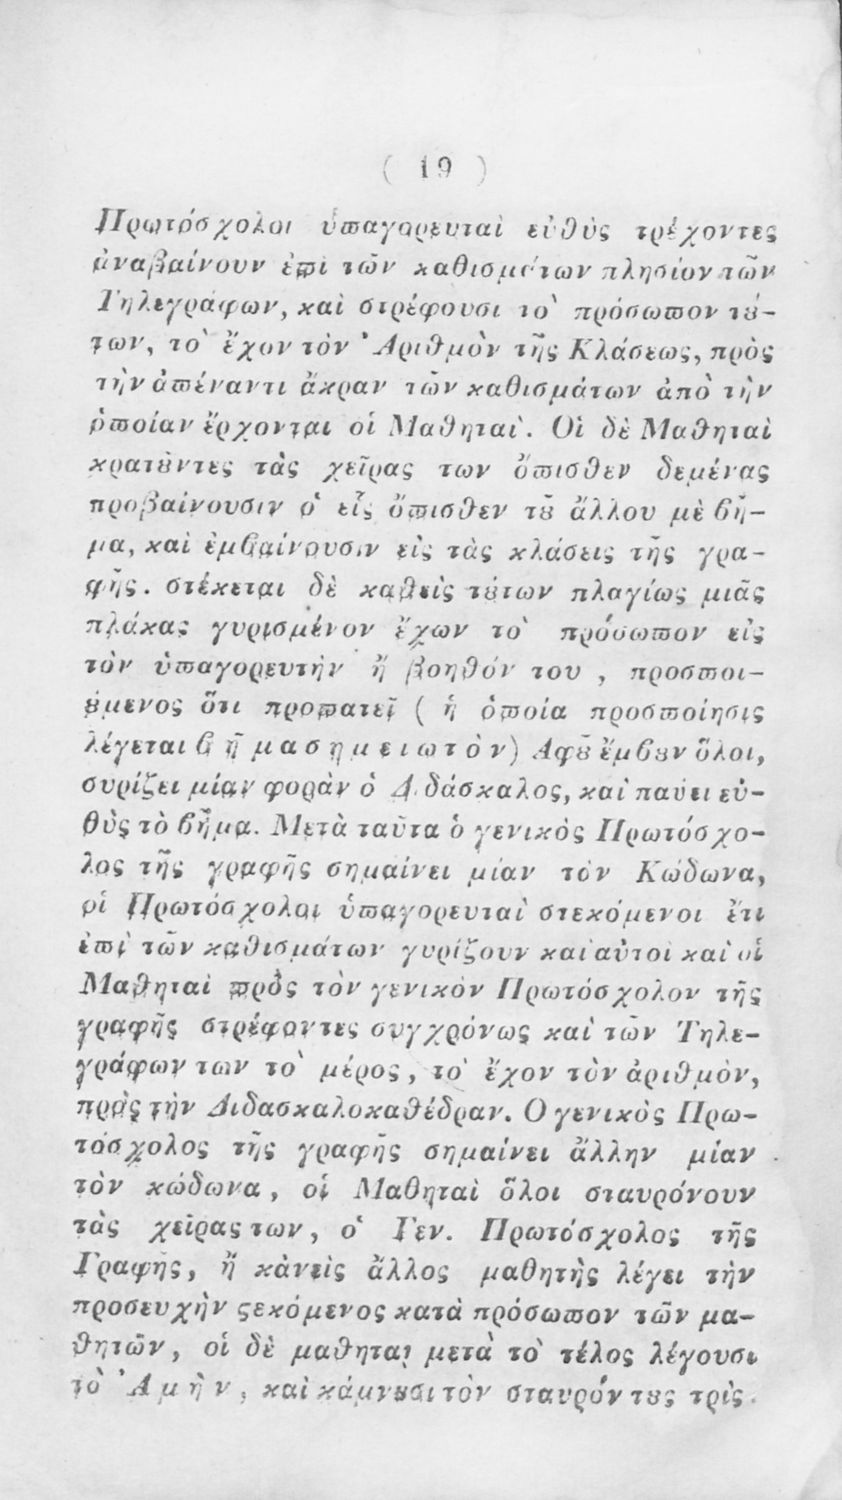 ( 19 )
Πρωτόσχολοι ὑπαγορευταὶ εὐθὺς τρέχοντες
ἀναβαίνουν ἐπὶ τῶν καθισμάτων πλησίον τῶν
Τηλεγράφων, καὶ στρέφουσι το᾽ πρόσωπον τȣ́-
των, το᾽ ἔχον τὸν Ἀριθμὸν τῆς Κλάσεως, πρὸς
τὴν ἀπέναντι ἄκραν τῶν καθισμάτων ἀπὸ τὴν
ὁποίαν ἔρχονται οἱ Μαθηταί. Οἱ δὲ Μαθηταὶ
κρατȣ̂ντες τὰς χεῖρας των ὄπισθεν δεμένας
προβαίνουσιν ὁ εἷς ὄπισθεν τȣ̃ ἄλλου μὲ βῆ-
μα, καὶ ἐμβαίνουσιν εἰς τὰς κλάσεις τῆς γρα-
φῆς. στέκεται δὲ καθεὶς τȣ́των πλαγίως μιᾶς
πλάκας γυρισμένον ἔχων το᾽ πρόσωπον εἰς
τὸν ὑπαγορευτὴν ἤ βοηθόν του , προσποι-
ȣ́μενος ὅτι προπατεῖ ( ἡ ὁποία προσποίησις
λέγεται β ῆ μ α σ η μ ε ι ω τ ὸ ν) Αφȣ̃ ἔμβȣν ὅλοι,
συρίζει μίαν φορὰν ὁ Διδάσκαλος, καὶ παύει εὐ-
θὺς τὸ βῆμα. Μετὰ ταῦτα ὁ γενικὸς Πρωτόσχο-
λος τῆς γραφῆς σημαίνει μίαν τὸν Κώδωνα,
οἱ Πρωτόσχολοι ὑπαγορευταὶ στεκόμενοι ἔτι
ἐπὶ τῶν καθισμάτων γυρίζουν καὶ αὐτοὶ καὶ οἱ
Μαθηταὶ πρὸς τὸν γενικὸν Πρωτόσχολον τῆς
γραφῆς στρέφοντες συγχρόνως καὶ τῶν Τηλε-
γράφων των το᾽ μέρος, το᾽ ἔχον τὸν ἀριθμὸν,
πρὸς τὴν Διδασκαλοκαθέδραν. Ο γενικὸς Πρω-
τόσχολος τῆς γραφῆς σημαίνει ἄλλην μίαν
τὸν κώδωνα, οἱ Μαθηταὶ ὅλοι σταυρόνουν
τὰς χεῖρας των, ὁ Γεν. Πρωτόσχολος τῆς
Γραφῆς, ἤ κἀνεὶς ἄλλος μαθητὴς λέγει τὴν
προσευχὴν ϛεκόμενος κατὰ πρόσωπον τῶν μα-
θητῶν, οἱ δὲ μαθηταὶ μετὰ το᾽ τέλος λέγουσι
τὸ Ἀ μ ὴ ν, καὶ κάμνȣσι τὸν σταυρόν τȣς τρὶς.